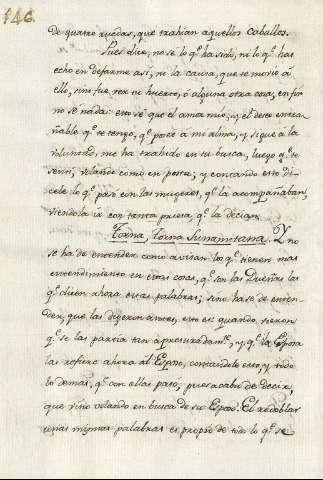 146
de quatro ruedas, que trahían aquellos Caballos.
Pues dice, no sé lo q.e ha sido, ni lo q.e has
echo en dejarme así, ni la causa, que te movió a
ello, si no fue ver tu huerto, ó alguna otra cosa, en fin
no sé nada: esto sé que el ama mío, y el deseo entra-
ñable q.e te tengo, q.e posee á mi alma, y sigue á la
voluntad, me ha trahido en tu busca, luego q.e te
sentí, volando como en posta; y contando esto di-
cele lo q.e pasó con las mugeres, q.e la acompañaban,
viendola ir con tanta priesa, q.e la decían;
Torna, Torna Sunamitana. Y no
se ha de entender como avisan lo q.e tienen mas
entendimiento en estas cosas, q.e son las Dueñas las
q.e dicen ahora estas palabras; sino hase de enten-
der, que las digeron antes, esto es quando vieron
q.e se las partía tan apresuradam.te, y q.e la Esposa
las refiere ahora al Esposo, contandole esto, y todo
lo demas, q.e con ellas pasó; pues acaba de decir,
que vino volando en busca de su Esposo. El redoblar
unas mismas palabras es propio de todo lo q.e se